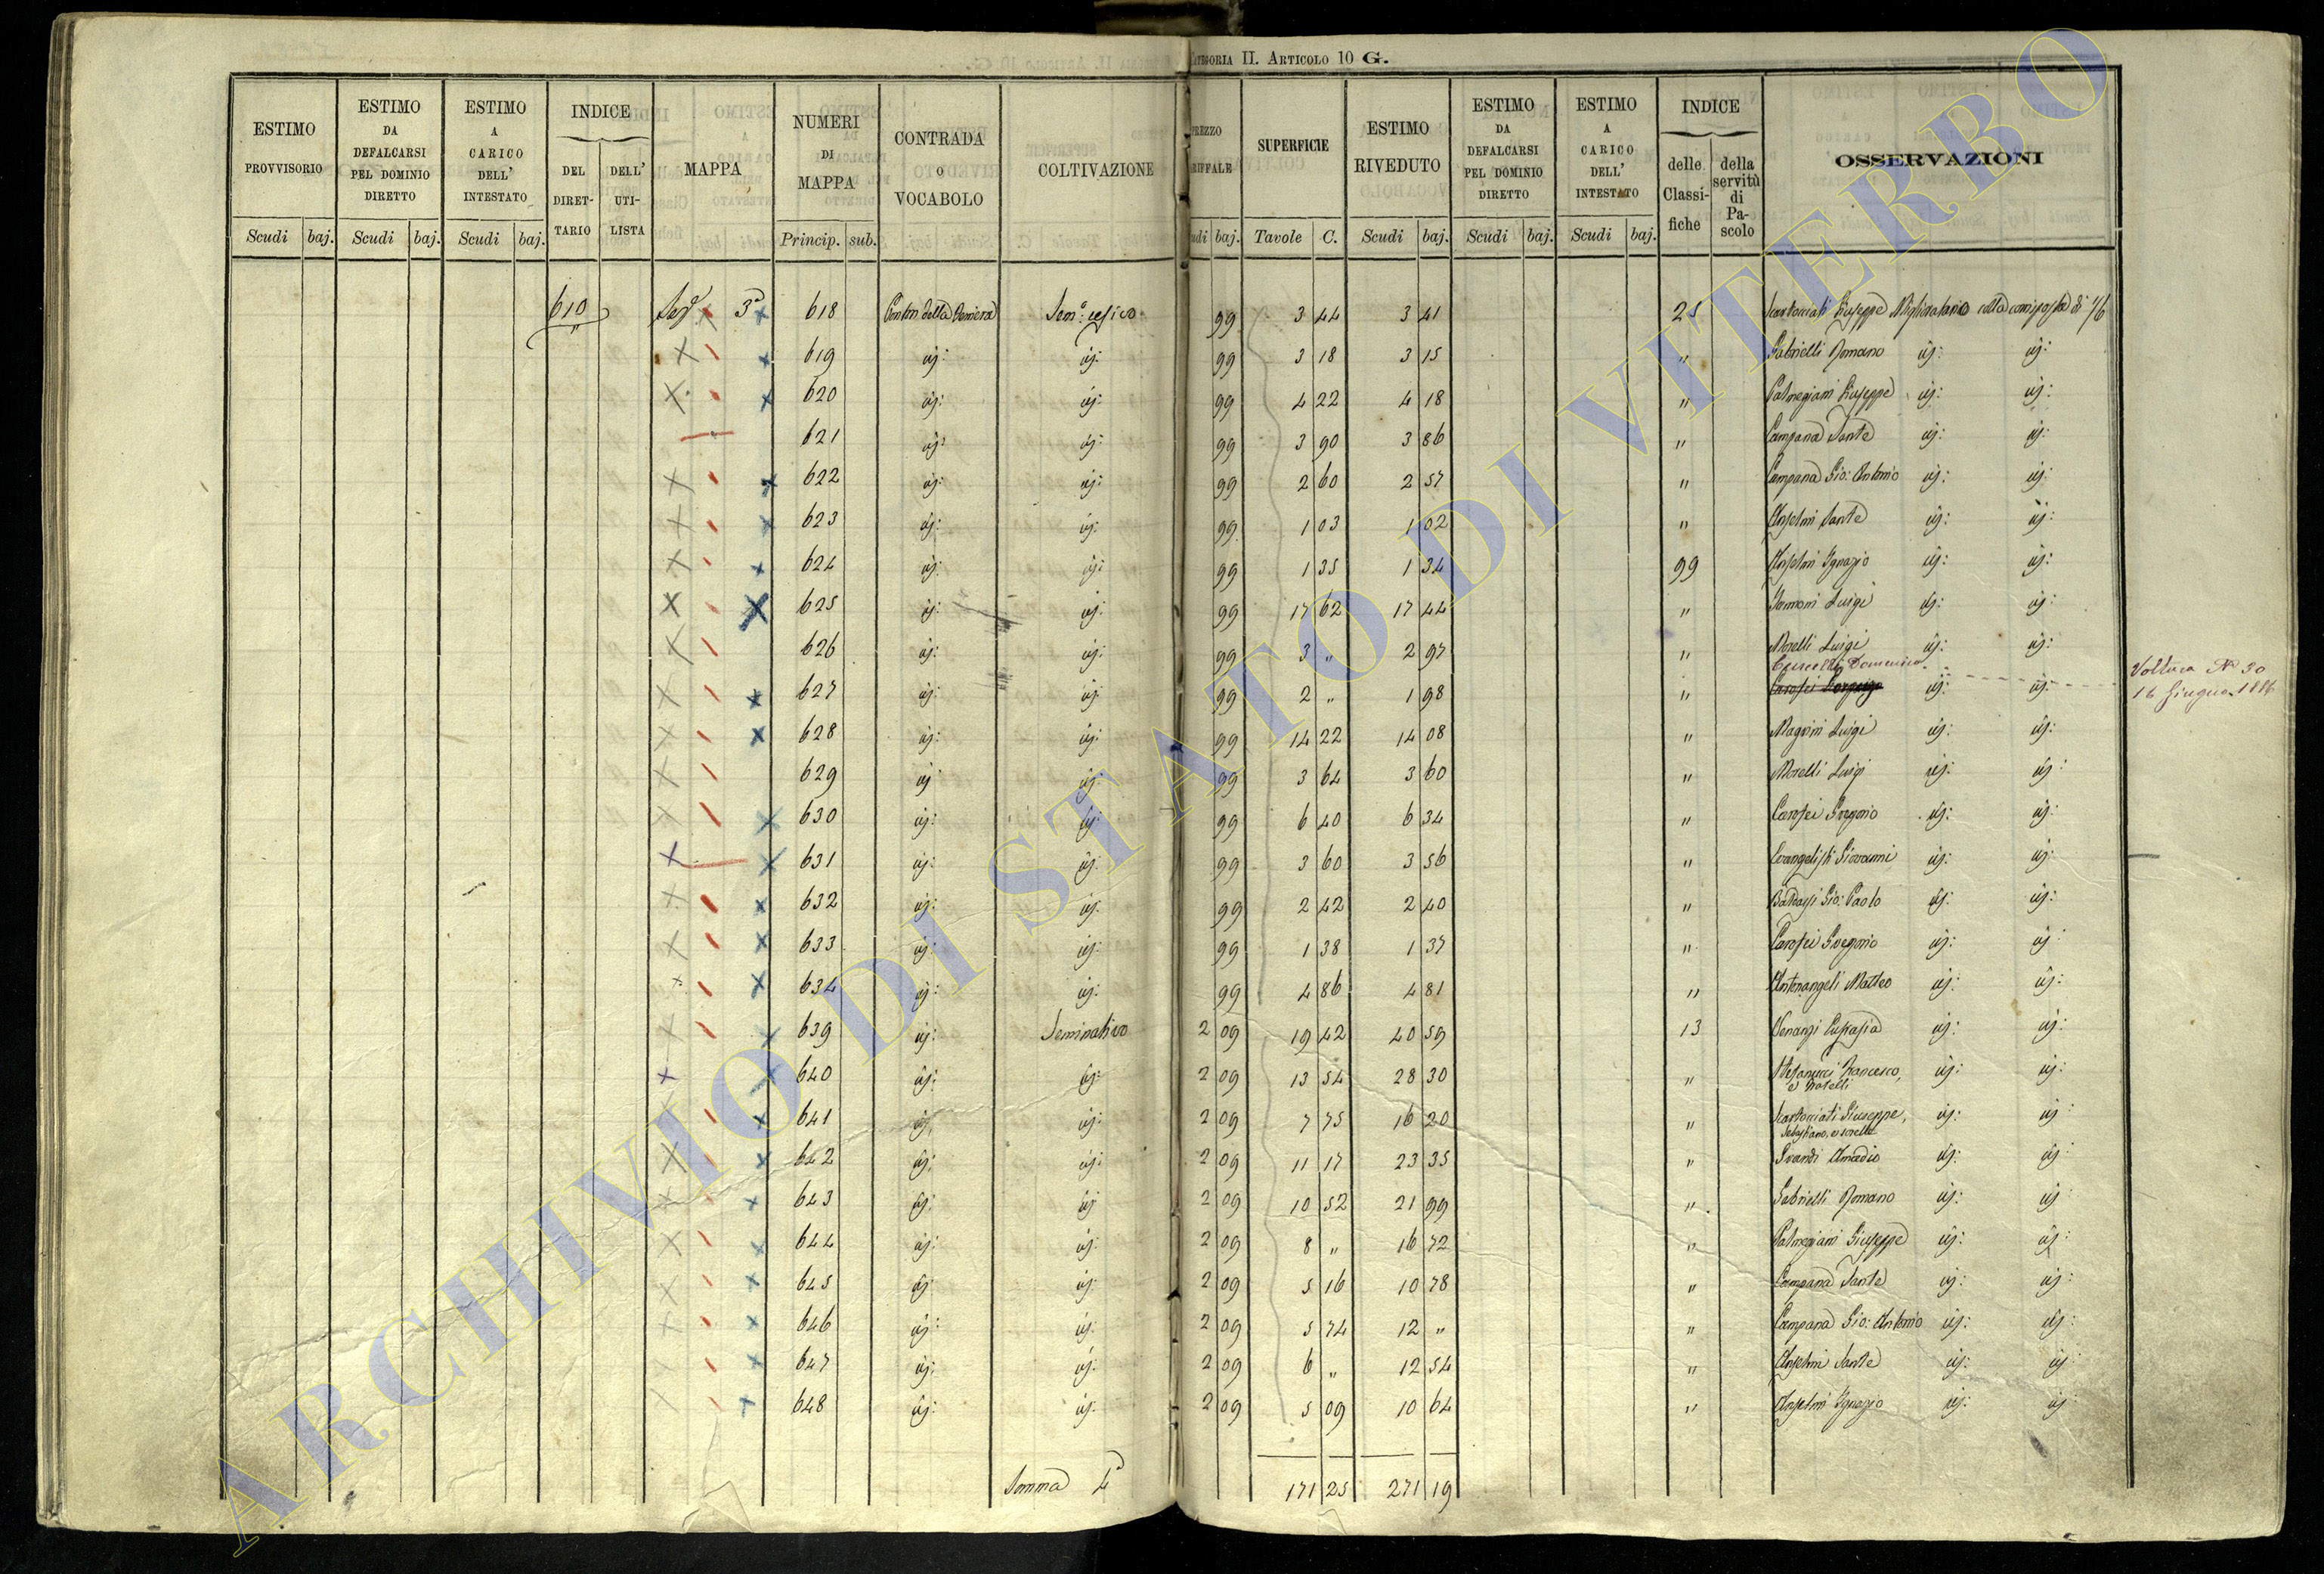 CATEGORIA II. ARTICOLO 10 G.
ESTIMO PROVVISORIO | ESTIMO DA DEFALCARSI PEL DOMINIO DIRETTO | ESTIMO A CARICO DELL' INTESTATO | INDICE | MAPPA | NUMERI DI MAPPA | CONTRADA O VOCABOLO | COLTIVAZIONE | PREZZO TARIFFALE | SUPERFICIE | ESTIMO RIVEDUTO | ESTIMO DA DEFALCARSI PEL DOMINIO DIRETTO | ESTIMO A CARICO DELL' INTESTATO | INDICE | OSSERVAZIONI
DEL DIRETTARIO | DELL' UTILISTA | delle Classifiche | della servitù di Pascolo
Scudi baj. | Scudi baj. | Scudi baj. | Princip. sub. | udi baj. | Tavole C. | Scudi baj. | Scudi baj. | Scudi baj.
610 Sez 3a 618 Sem: cesivo 99 3 44 3 41 25 Scartocciati Giuseppe Miglioratario colla corrisposta di 1/6
619 id: id: 99 3 18 3 15 " Gabrielli Romano id: id:
620 id: id: 99 4 22 4 18 " Palmegiani Giuseppe id: id:
621 id: id: 99 3 90 3 86 " Campana Sante id: id:
622 id: id: 99 2 60 2 57 " Campana Gio: Antonio id: id:
623 id: id: 99 1 03 1 02 " Anselmi Sante id: id:
624 id: id: 99 1 35 1 34 99 Anselmi Ignazio id: id:
625 id: id: 99 17 62 17 44 " Luigi id: id:
626 id: id: 99 3 " 2 97 " Morelli Luigi id: id:
Domenico
627 id: id: 99 2 " 1 98 " id: id: Voltura N 30
16 Giugno 1886
628 id: id: 99 14 22 14 08 " Magrini Luigi id: id:
629 id: id: 99 3 64 3 60 " Morelli Luigi id: id:
630 id: id: 99 6 40 6 34 " Carosei Gregorio id: id:
631 id: id: 99 3 60 3 56 " Evangelisti Giovanni id: id:
632 id: id: 99 2 42 2 40 " Gio: Paolo id: id:
633 id: id: 99 1 38 1 37 " Carosei Gregorio id: id:
634 id: id: 99 4 86 4 81 " Antonangeli Matteo id: id:
639 id: Seminativo 2 09 19 42 40 59 13 Venanzi Eufrasia id: id:
640 id: id: 2 09 13 54 28 30 " Stefanucci Francesco, id: id:
e fratelli
641 id: id: 2 09 7 75 16 20 " Scartocciati Giuseppe, id: id:
Sebastiano, e sorelle
642 id: id: 2 09 11 17 23 35 " Amadio id: id:
643 id: id: 2 09 10 52 21 99 " Gabrielli Romano id: id:
644 id: id: 2 09 8 " 16 72 " Palmegiani Giuseppe id: id:
645 id: id: 2 09 5 16 10 78 " Campana Sante id: id:
646 id: id: 2 09 5 74 12 " " Campana Gio: Antonio id: id:
647 id: id: 2 09 6 " 12 54 " Anselmi Sante id: id:
648 id: id: 2 09 5 09 10 64 " Anselmi Ignazio id: id:
Somma 4a 171 25 271 19
ARCHIVIO DI STATO DI VITERBO